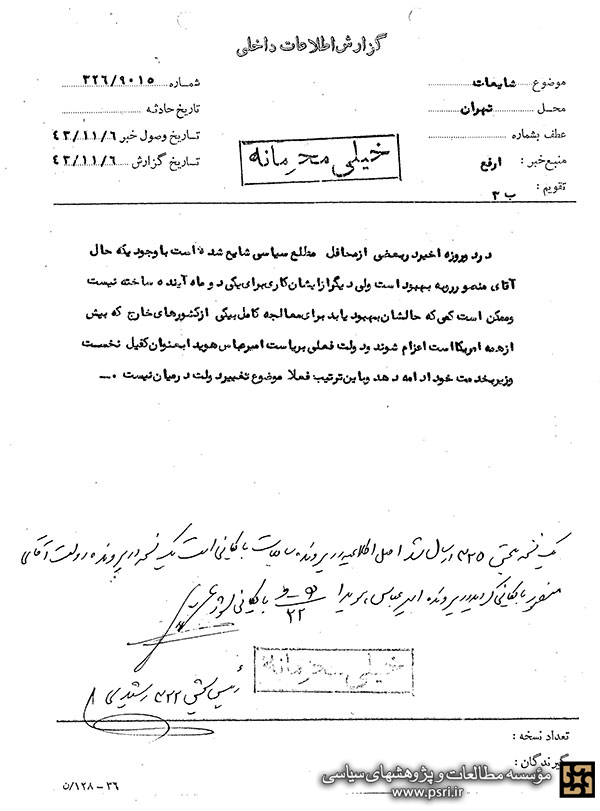 گزارش اطلاعات داخلی
موضوع شایعات
محل تهران
عطف بشماره
منبع خبر : ارفع
تقویم : ب ۳
شماره ۳۲۶/۹۰۱۵
تاریخ حادثه
تاریخ وصول خبر ۴۳/۱۱/۶
تاریخ گزارش ۴۳/۱۱/۶
خیلی محرمانه
در دو روزه اخیر در بعضی از محافل مطلع سیاسی شایع شده است با وجودیکه حال
آقای منصور رو به بهبود است ولی دیگر از ایشان کاری برای یکی دو ماه آینده ساخته نیست
و ممکن است کمی که حالشان بهبود یابد برای معالجه کامل بیکی از کشورهای خارج که بیش
از همه امریکا است اعزام شوند و دولت فعلی بریاست امیرعباس هویدا بعنوان کفیل نخست
وزیر بخدمت خود ادامه دهد و باین ترتیب فعلا موضوع تغییر دولت در میان نیست .
یک نسخه ببخش ۳۲۵ ارسال شد اصل اطلاعیه در پرونده شایعات بایگانی است یک نسخه در پرونده دولت آقای
منصور بایگانی گردید در پرونده امیرعباس هویدا بایگانی شود
خیلی محرمانه
رئیس بخش ۳۲۲ رشیدی
تعداد نسخه :
گیرندگان :
۳۶ – ۱۲۸/ن
مؤسسه مطالعات و پژوهشهای سیاسی
www.psri.ir